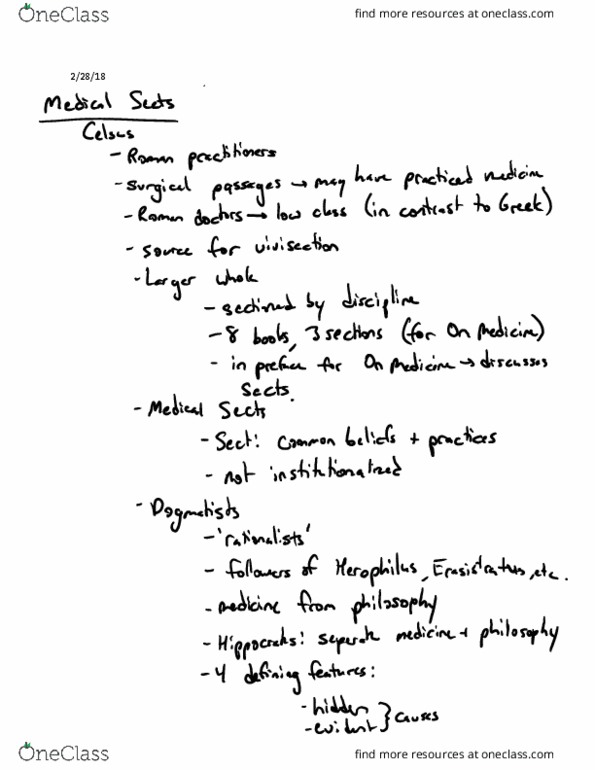 OneClass
find more resources at oneclass.com
2/28/18
Medical Sects
Celsus
- Roman practitioners
- surgical passages → may have practiced medicine
- Roman doctors → low class (in contrast to Greek)
- source for vivisection
- Larger whole
- sectioned by discipline
- 8 books, 3 sections (for On Medicine)
- in preface for On Medicine → discusses
Sects.
- Medical Sects
- Sect: common beliefs + practices
- not institutionalized
- Dogmatists
- 'rationalists'
- followers of Herophilus, Erasistratus, etc.
- medicine from philosophy
- Hippocrates: separate medicine + philosophy
- 4 defining features:
- hidden
- evident } causes
OneClass
find more resources at oneclass.com